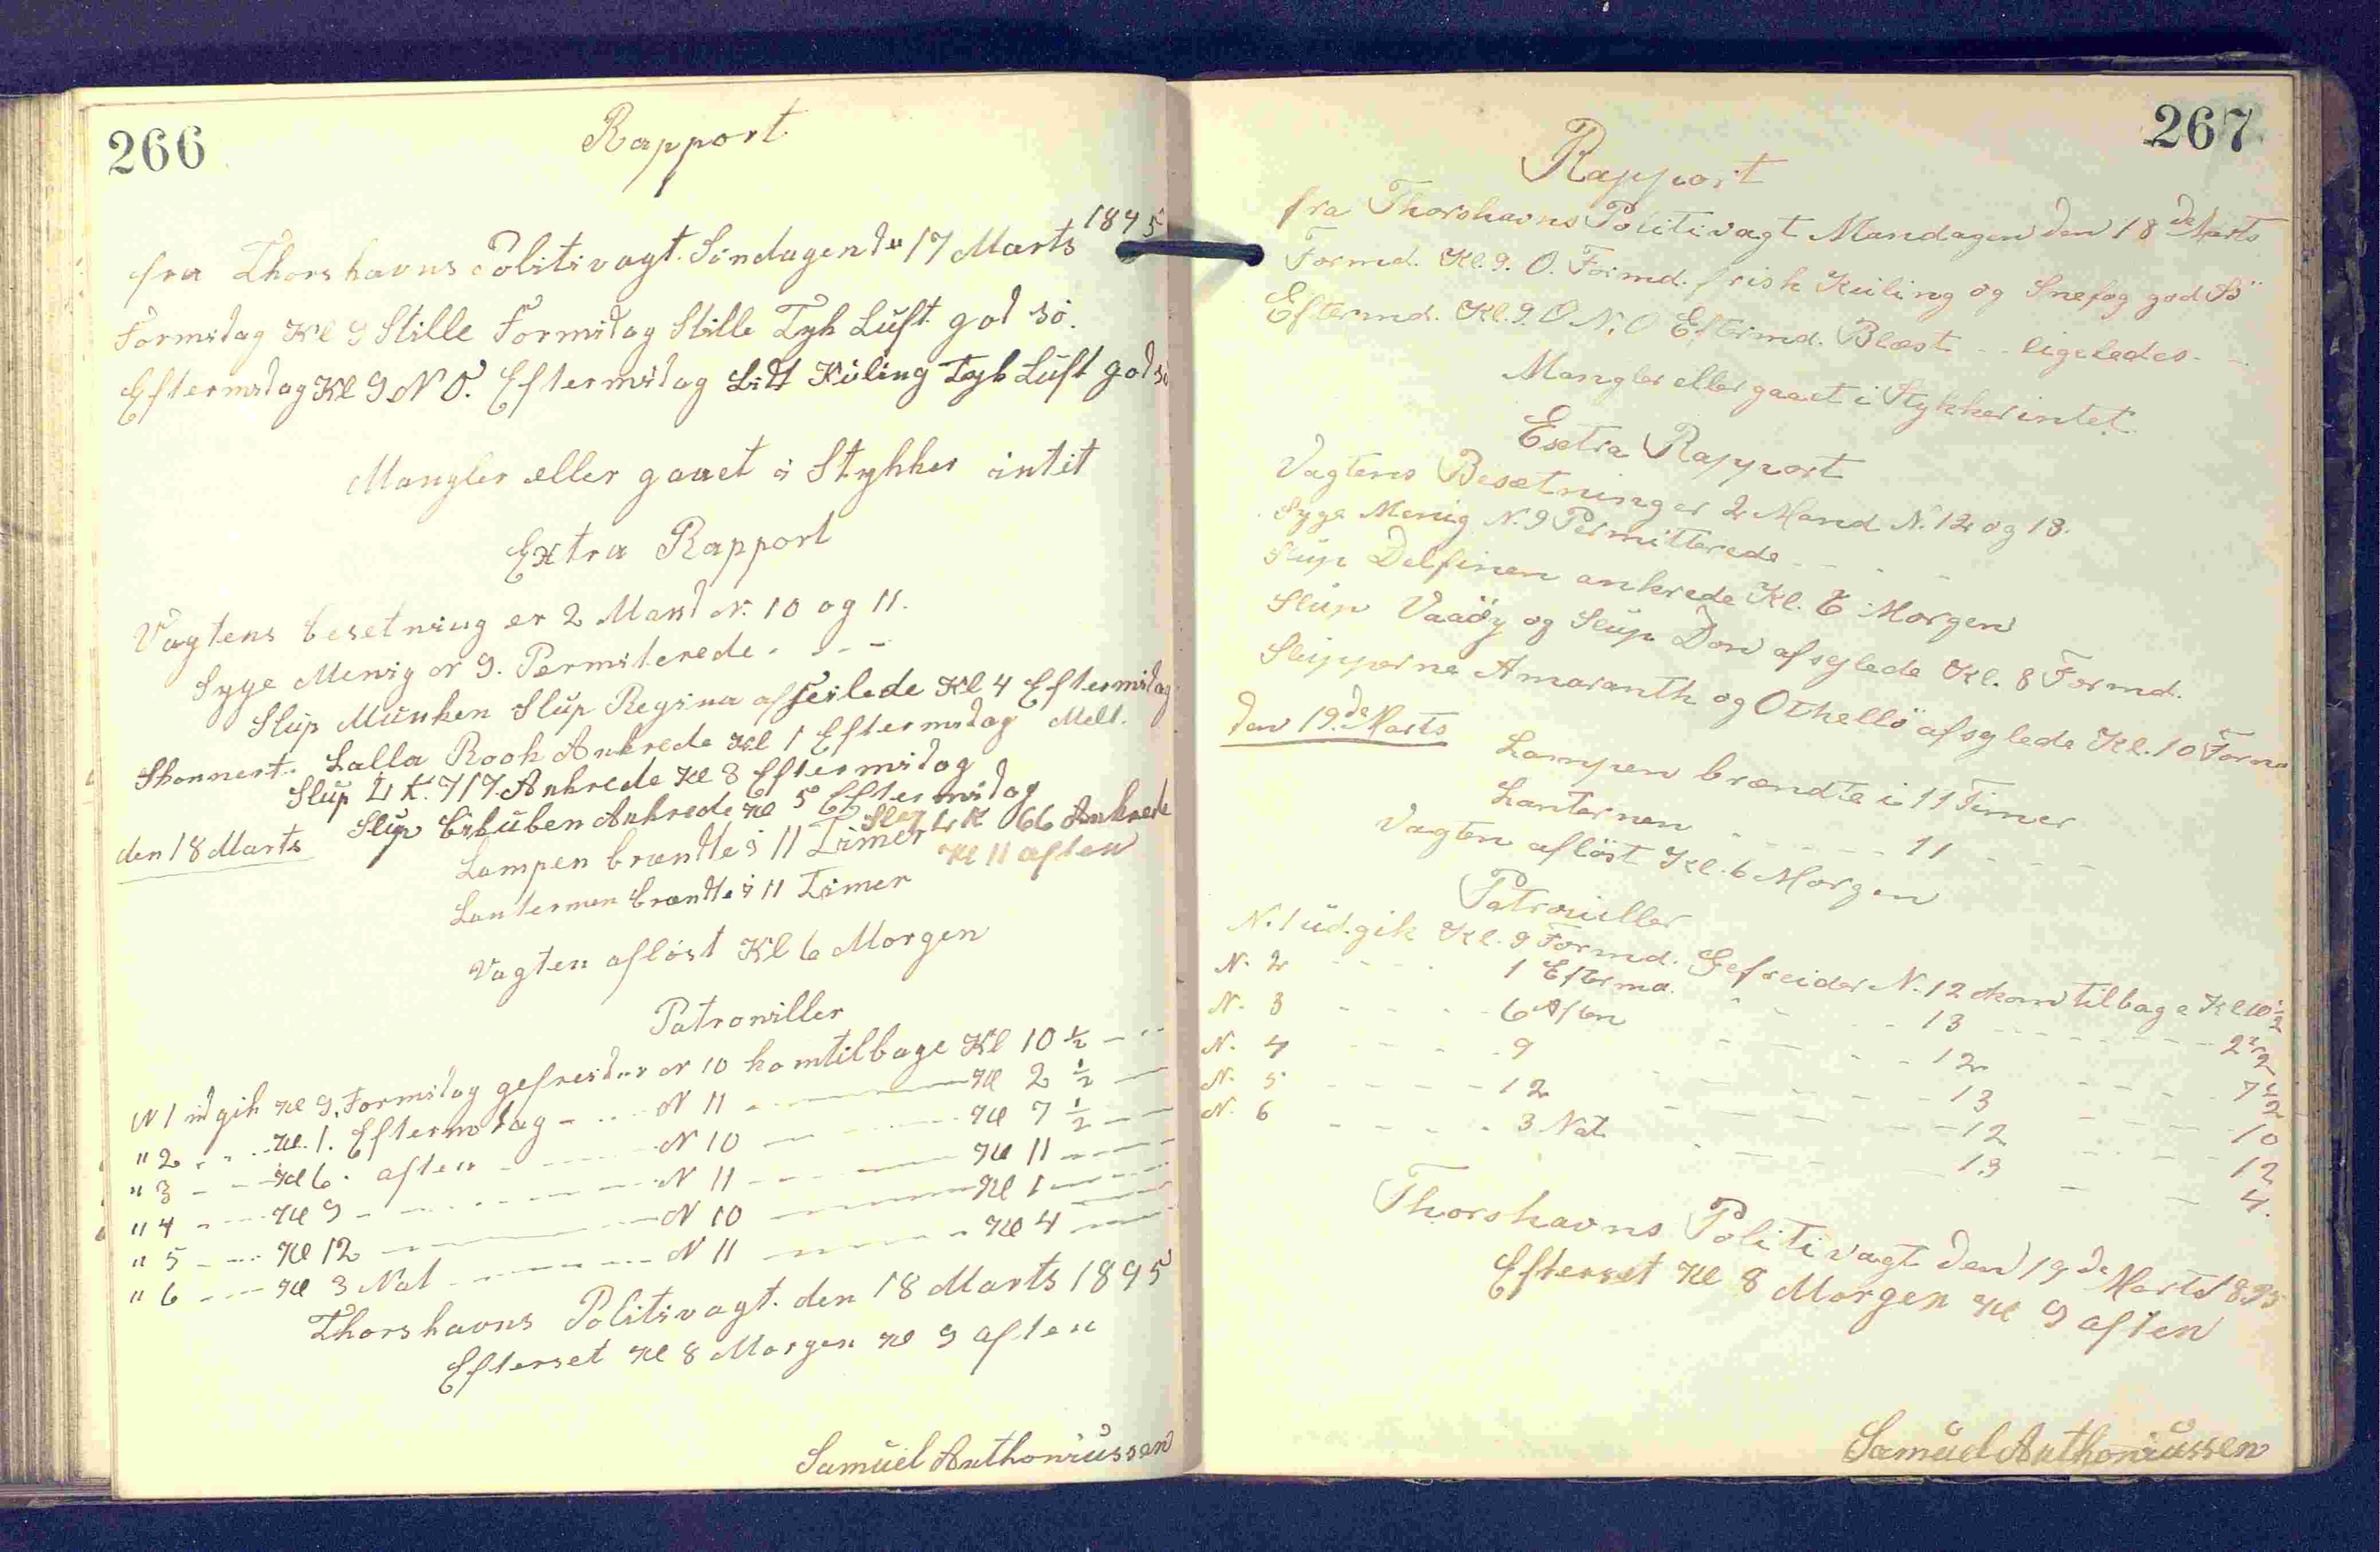 266
Rapport
1895
fra Thorshavns Politivagt. Söndagen dn 17 Marts
Formidag Kl 9 Stille Formidag Stille Tyk Luft god Sö.
Eftermidag Kl 9 N O. Eftermidag Lidt Kuling Tyk Luft god sö
Mangler eller gaaet i Stykker intit
Extra Rapport
Vagtens besetning er 2 Mand N. 10 og 11.
Syge Menig N 9. Permiterede . - - -
Slup Munken Slup Regina afseilede Kl 4 Eftermidag
Skonnert. Lalla Rook Ankrede Kl 1 Eftermidag Meld.
Slup L K. 717. Ankrede Kl 8 Eftermidag
Slup Ankrede Kl 5 Eftermidag
Slup L K 66 Ankrede
Kl 11 aften
den 18 Marts
Lampen brændte i 11 Timer
Lanternen brændte i 11 Timer
Vagten aflöst Kl 6 Morgen
Patrouiller
N 1 udgik Kl 9. Formidag gefreider N 10 kom tilbage Kl 10 ½ - - -
" 2 - - - Kl. 1. Eftermidag - - - N 11 - - - Kl 2 ½ -
" 3 - - - Kl 6. aften - - - N 10 - - - Kl 7 ½ - -
" 4 - - - Kl 9 - - - N 11 - - - Kl 11 - - -
" 5 - - - Kl 12 - - - N 10 - - - Kl 1 - - -
" 6 - - - Kl 3 Nat - - - N 11 - - - Kl 4 - - -
Thorshavns Politivagt. den 18 Marts 1895
Efterset Kl 8 Morgen Kl 9 aften
Samuel Anthoniussen
267
Rapport
fra Thorshavns Politivagt Mandagen den 18 de Marts
Formd. Kl. 9. O. Formd. frisk Kuling og Snefog god Sö
Eftermd. Kl. 9 O.N.O Eftermd. Blæst - - ligeledes - -
Mangler eller gaaet i Stykker intet.
Esctra Rapport
Vagtens Besætning er 2 Mand N. 12 og 13.
Syge Menig N. 9 Permitterede - - - -
Slup Delfinen ankrede Kl. 6 Morgen
Slup Vaaöy og Slup Don afseglede Kl. 8 Formd.
Slupperne Amaranth og Othello afseglede Kl. 10 Formd
den 19. de Marts
Lampen brændte i 11 Timer
Lanternen - - - - 11 - - - -
Vagten aflöst Kl. 6 Morgen
Patrouiller
N. 1 udgik Kl. 9 Formd. Gefreider N. 12 kom tilbage Kl 10 ½
N. 2 - - - - 1 Efterma. - - - 13 - - - - 2 ½
N. 3 - - - - 6 Aften - - - 12 - - - 7 ½
N. 4 - - - - 9 - - - 13 - - - 10
N. 5 - - - - 12 - - - 12 - - - 12
N. 6 - - - - 3 Nat - - - 13 - - - 4.
Thorshavns Politivagt den 19 de Marts 1895
Efterset Kl 8 Morgen Kl 9 aften
Samuel Anthoniussen